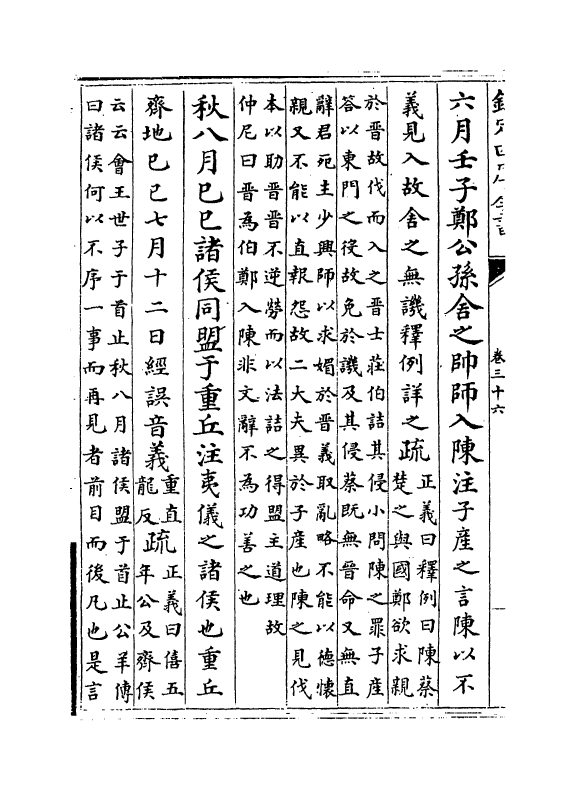 欽定四庫全書
卷三十六
六月壬子鄭公孫舍之帥師入陳注子產之言陳以不
義見入故舍之無譏釋例詳之疏
正義曰釋例曰陳蔡
楚之與國鄭欲求親
於晉故伐而入之晉士莊伯詰其侵小問陳之罪子產
答以東門之役故免於譏及其侵蔡既無晉命又無直
辭君宛主少興師以求媚於晉義取亂略不能以德懷
親又不能以直報怨故二大夫異於子產也陳之見伐
本以助晉晉不逆勞而以法詰之得盟主道理故
仲尼曰晉為伯鄭入陳非文辭不為功善之也
秋八月巳巳諸侯同盟于重丘注夷儀之諸侯也重丘
齊地巳巳七月十二日經誤音義
重直
龍反
疏
正義曰僖五
年公及齊侯
云云會王世子于首止秋八月諸侯盟于首止公羊傳
曰諸侯何以不序一事而再見者前目而後凡也是言